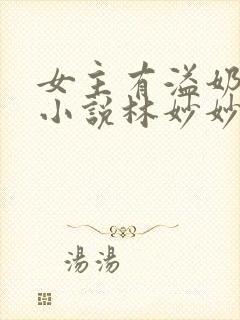 女主有溢奶
小說林妙妙
湯湯